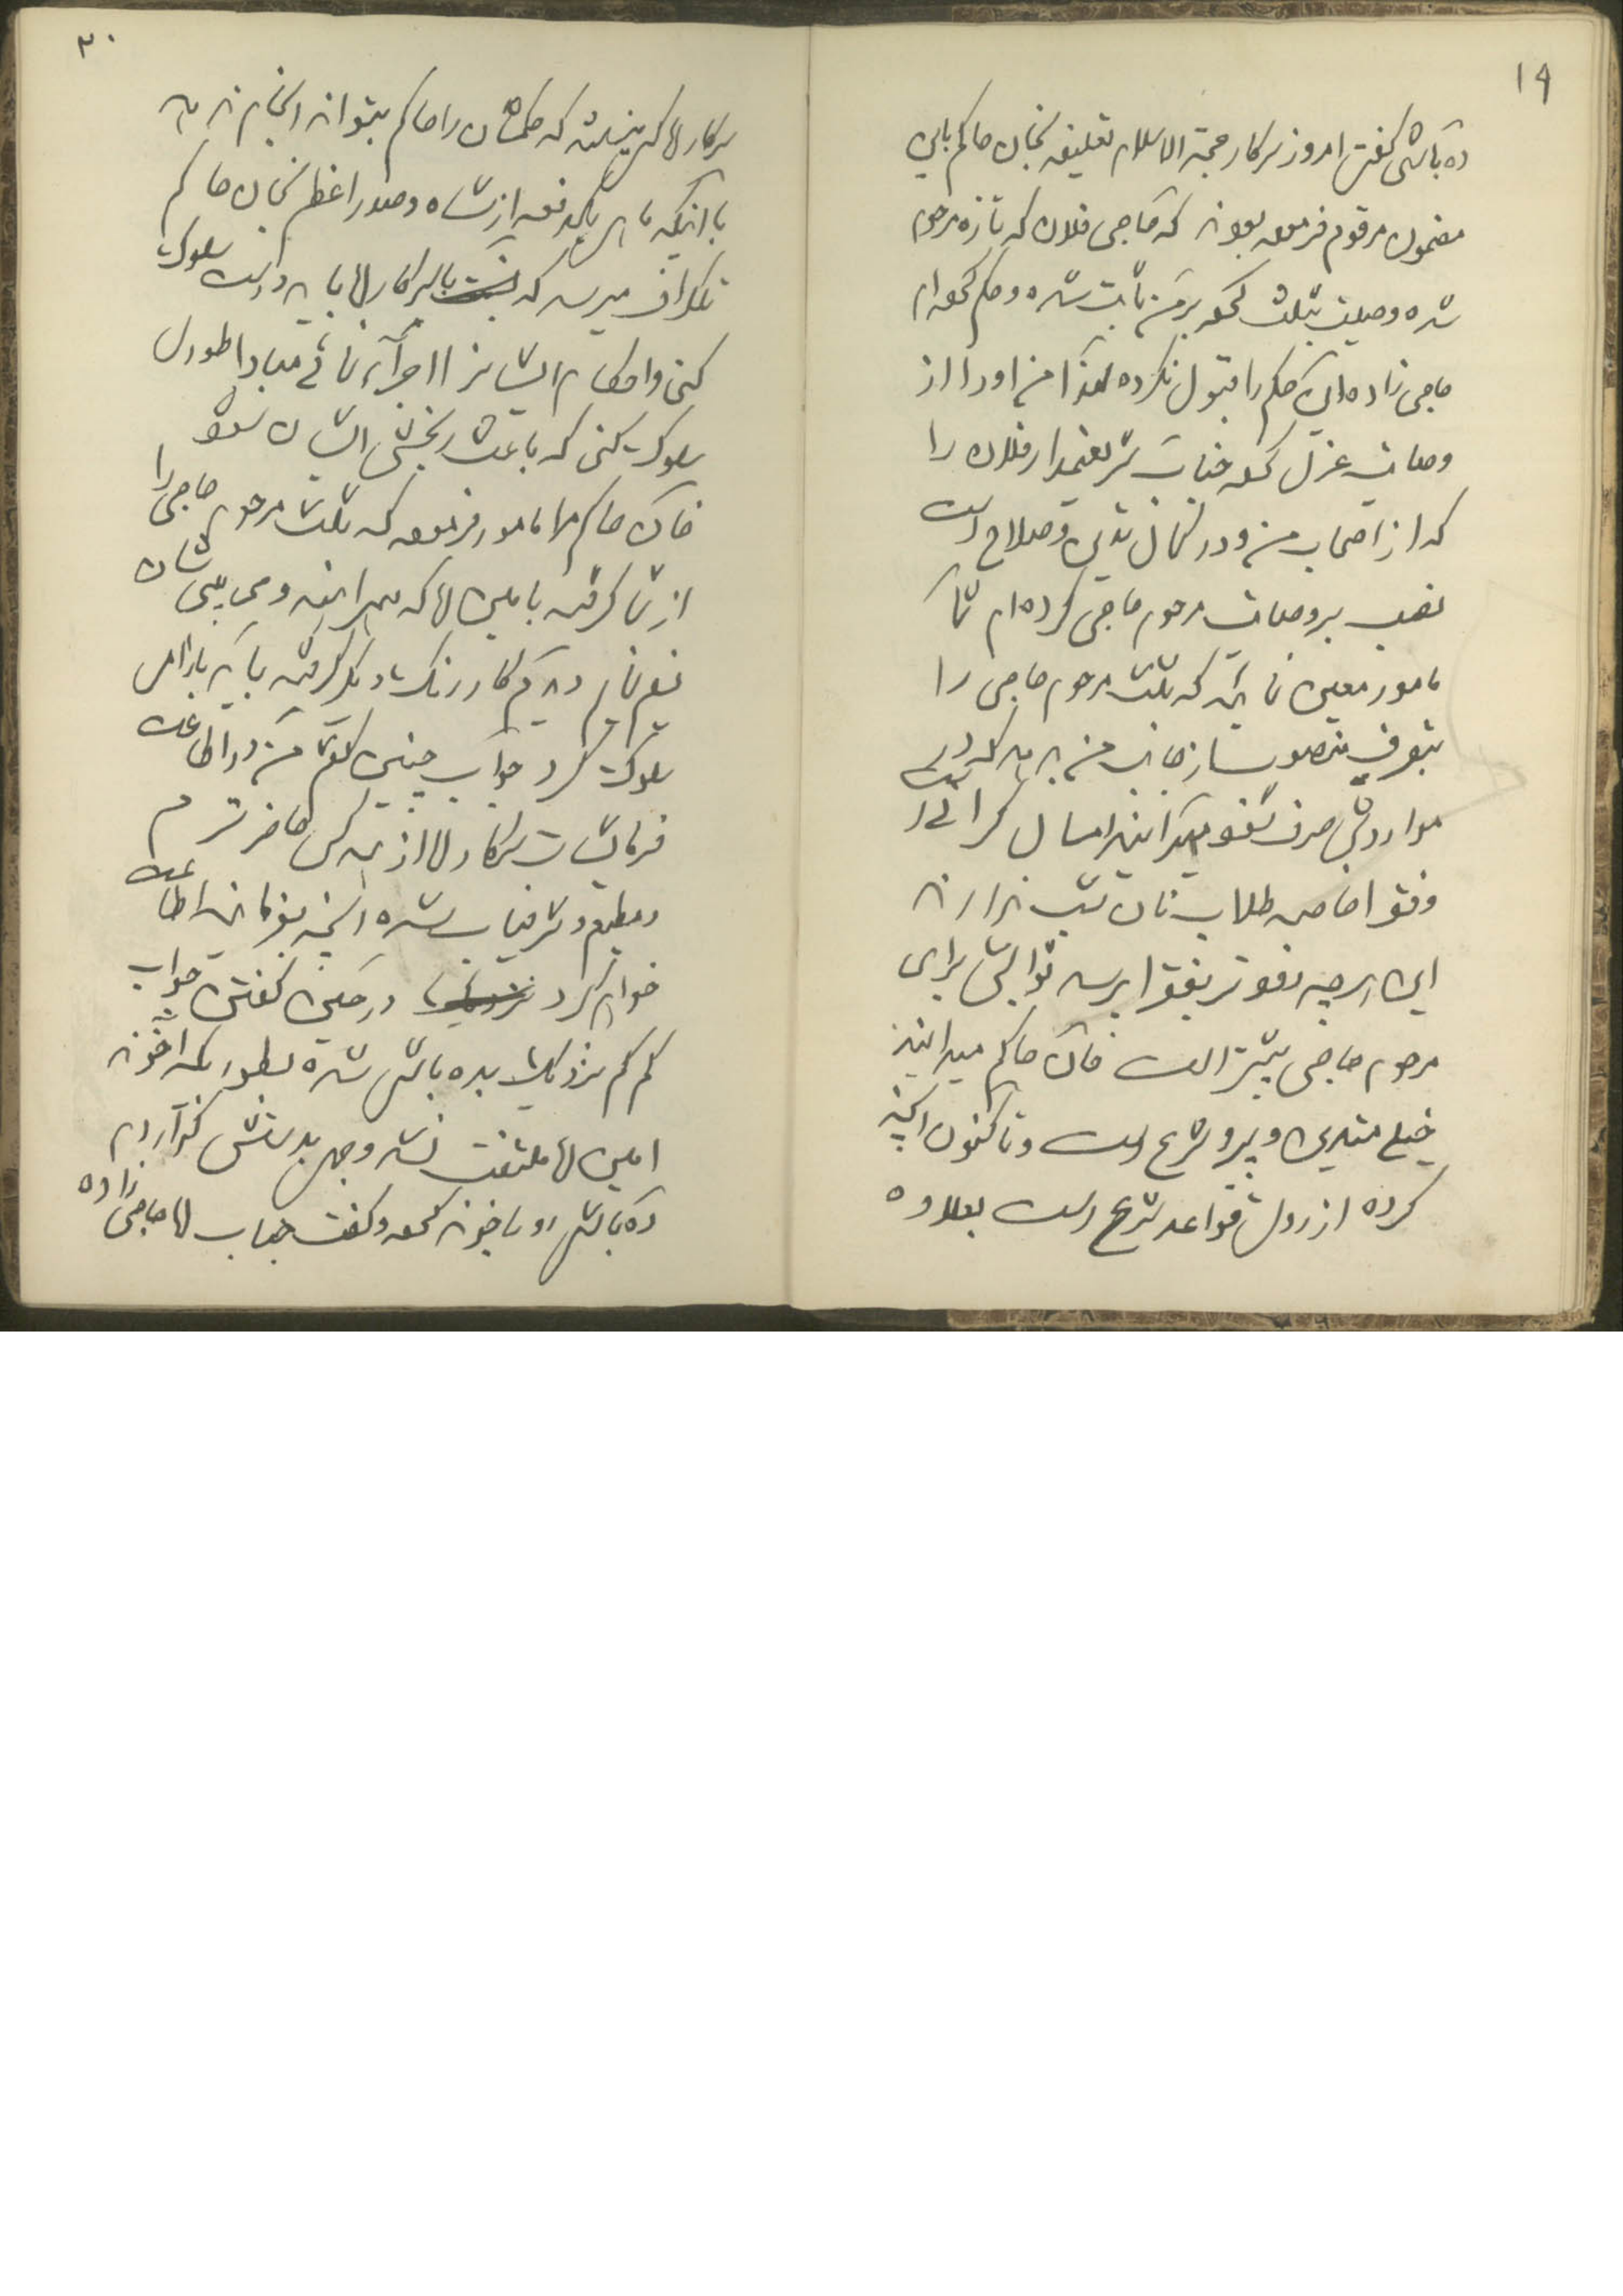 ۱۹
ده باشی گفتن امروز سرکار حجة الاسلام تعلیقه بخان حاکم باین
مضمون مرقوم فرموده بودند که حاجی فلان که تازه مرحوم
شده وصیت بثلث نموده بر من ثابت شده و حکم نموده ام
حاجی زاده این حکم را قبول نکرده لهذا من او را از
وصایت عزل نموده جناب شریعتمدار فلان را
که از اصحاب من و در کمال تدین و صلاح است
نصب بر وصایت مرحوم حاجی کرده ام تا
مامور معین نمائید که ثلث مرحوم حاجی را
بتصرف منصوب از جانب من بدهد که در
مواردش صرف شود میدانید امسال گرانی است
فقرا خاصه طلاب نان شب ندارند
این هر چه زودتر بفقرا برسد ثوابش برای
مرحوم حاجی بیشتر است خان حاکم میدانید
خیلی متدین و پیرو شرع است و تا کنون آنچه
کرده از روی قواعد شرع است بعلاوه
۲۰
سرکار آقا کسی نیستند که حکمشان را حاکم بتواند انجام ندهد
با آنکه ماهی یکدفعه از شاه و صدر اعظم بخان حاکم
تلگراف میرسد که با سرکار آقا باید درست سلوک
کنی و احکام ایشانرا اجراء نمائی مبادا طوری
سلوک کنی که باعث رنجش ایشان بشود
خان حاکم مرا مامور فرموده که ثلث مرحوم حاجی را
از شما گرفته بامین آقا که همراهند و می بینیشان
تسلیم نمایم دیدم کار رنگ دیگر گرفته باید با راه
سلوک کرد جواب چنین گفتم من در اطاعت
فرمایشات سرکار آقا از همه کس حاضرترم
و مطیع و شرفیاب شده آنچه بفرمایند اطاعت
خواهم کرد در حین گفتن جواب
کم کم نزدیک بده باشی شده بطوریکه آخوند
امین آقا ملتفت نشد وجهی بدستش گذاردم
ده باشی رو بآخوند نموده و گفت جناب آقا حاجی زاده